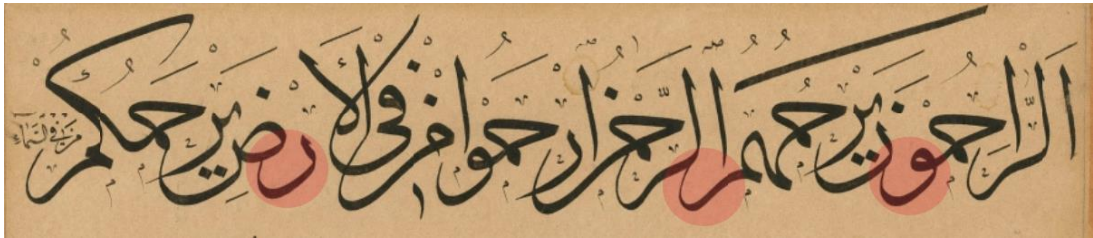 الرَّاحمون يرحمهم الرَّحمن ارحموا من في الأرض يرحمكم من في السماء